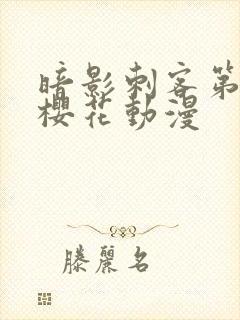 暗影刺客第
櫻花動漫
滕麗名